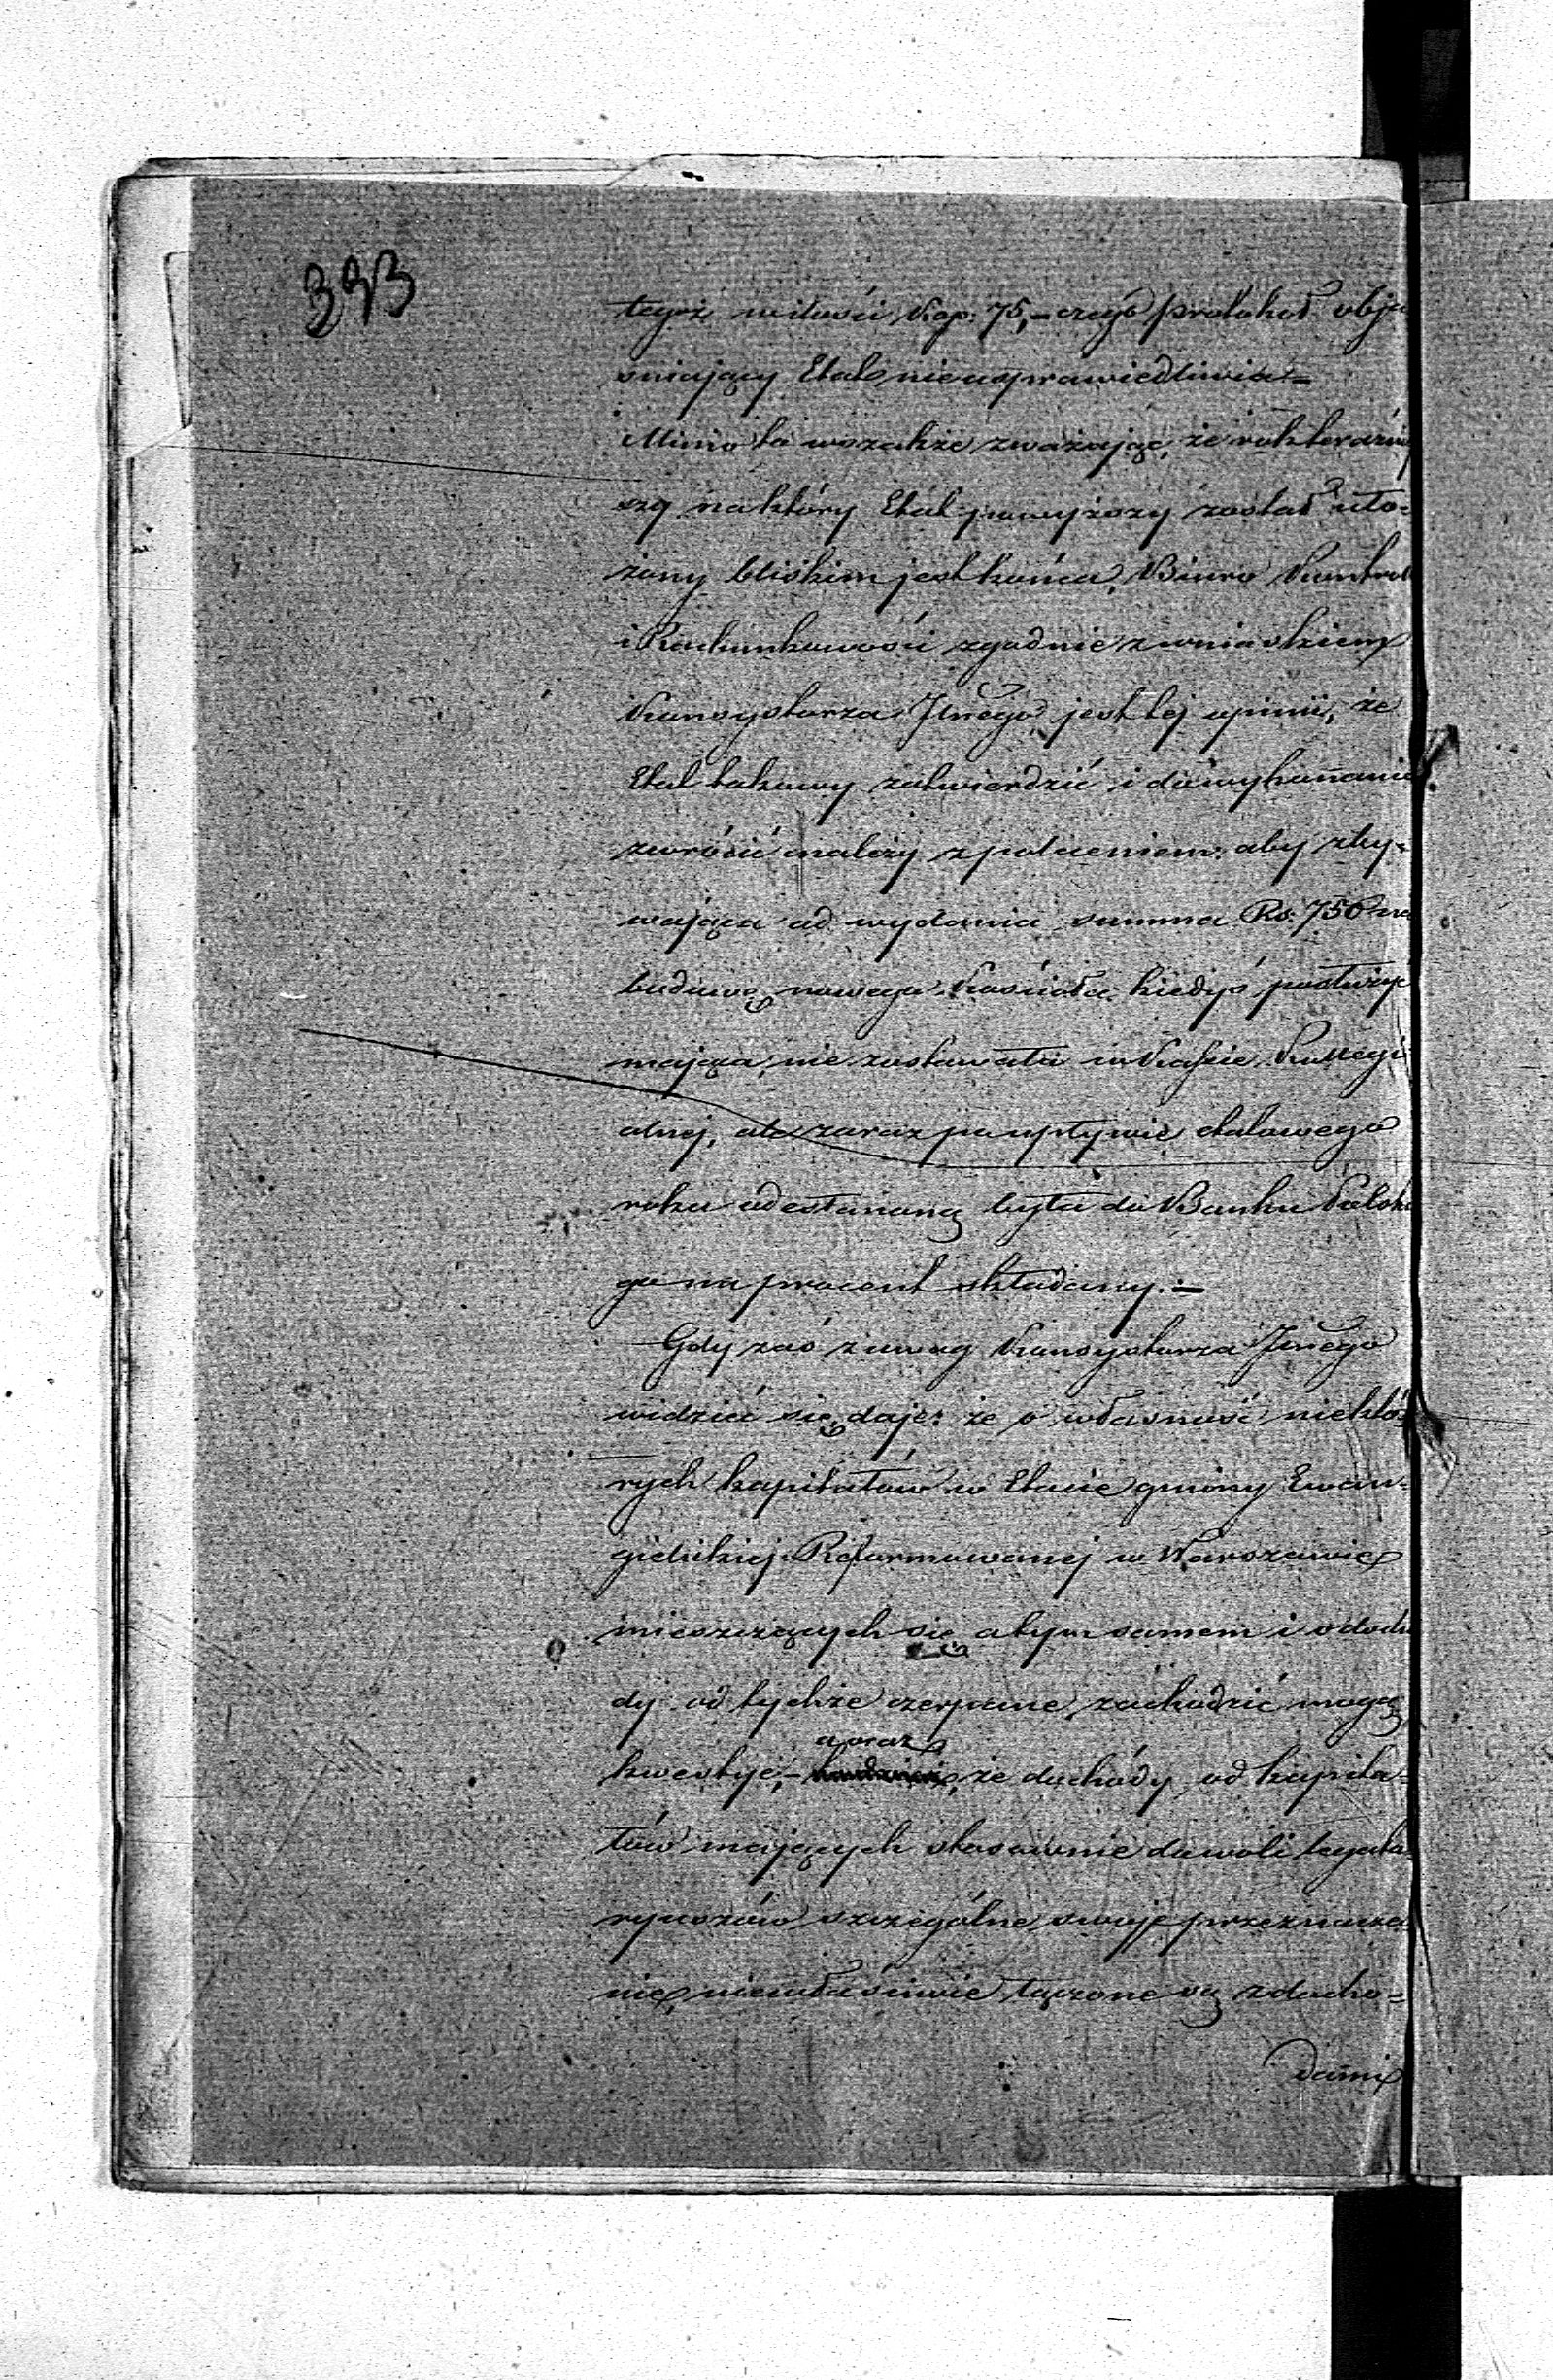 393
tegoż ilości Kop: 75,– czego protokół obja
śniający Etat nieusprawiedliwia –
Mimo to wszakże zważając, że rok teraźniej
szy na który Etat powyższy został uło-
żony bliskim jest końca, Biuro Kontroli
i Rachunkowości zgodnie z wnioskiem
Konsystorza Jlnego, jest tej opinii, że
Etat takowy zatwierdzić i do wykonania
zwrócić należy z poleceniem: aby zby-
wająca od wydania summa Rs: 756 na
budowę nowego Kościoła kiedyś posłużyć
mająca, nie zostawała w Kassie Kollegi
alnej, ale zaraz po upływie etatowego
roku odesłaną była do Banku Polskie
go na procent składany. –
Gdy zaś z uwag Konsystorza Jlnego
widzieć się daje: że o własność niektó-
rych kapitałów w Etacie gminy Ewan-
gielickiej Reformowanej w Warszawie
mieszczących się a tym samem i o docho
dy od tychże czerpane, zachodzić mogą
oraz
kwestye, – że dochody od kapita-
łów mających stosownie do woli legata-
ryuszów szczególne swoje przeznacze
nie, niewłaściwie łączone są z docho-
dami